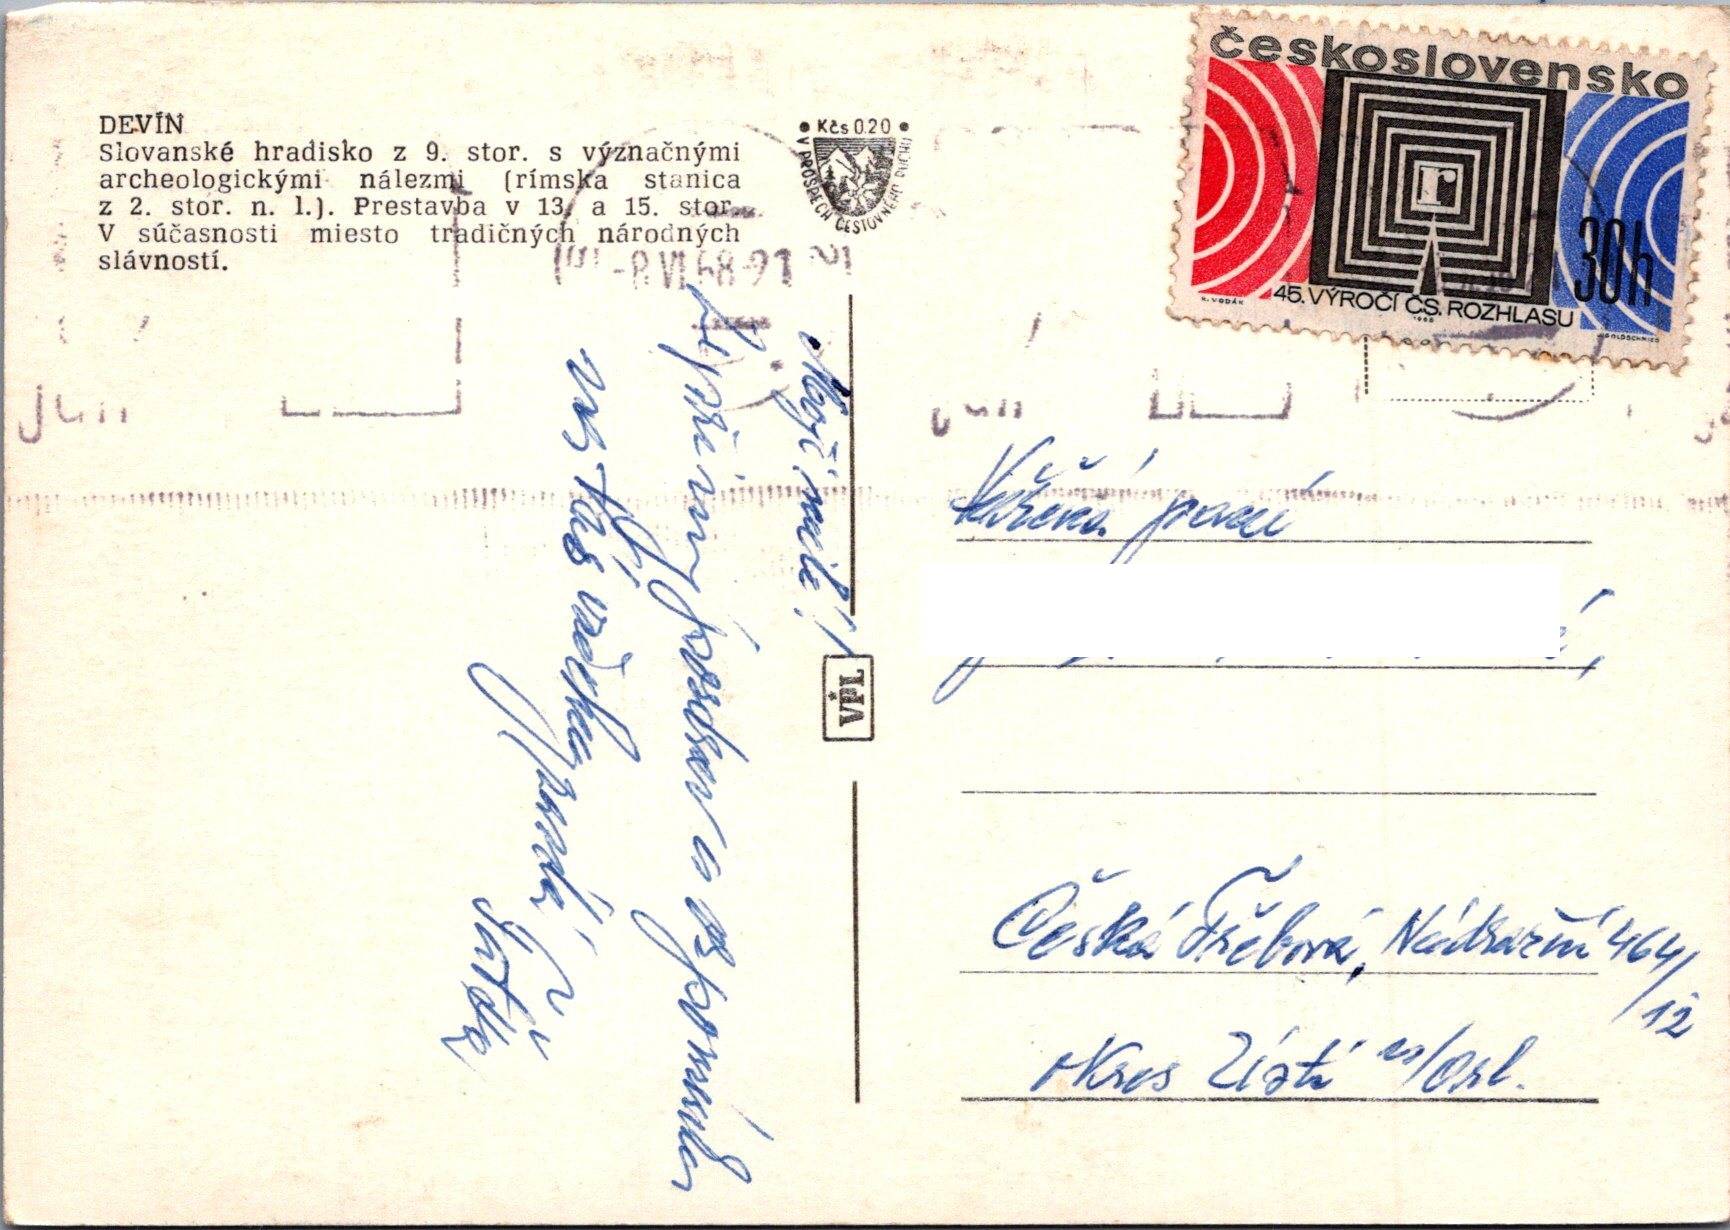 DEVÍN
Slovanské hradisko z 9. stor. s význačnými
archeologickými nálezmi (rímska stanica
z 2. stor. n. l.). Prestavba v 13. a 15. stor.
V súčasnosti miesto tradičných národných
slávností.
Kčs 0.20
V PROSPECH CESTOVNÉHO RUCHU
-8.VI.68-21
československo
r
30h
45. VÝROČÍ ČS. ROZHLASU
1968
K. VODÁK
J. GOLDSCHMIED
Moji milí!
Připinuj pozdrav a vzpomínku
na Vás
Jarda
VPL
Vážená paní
Česká Třebová, Nádražní 464/
12
okres Ústí n/Orl.